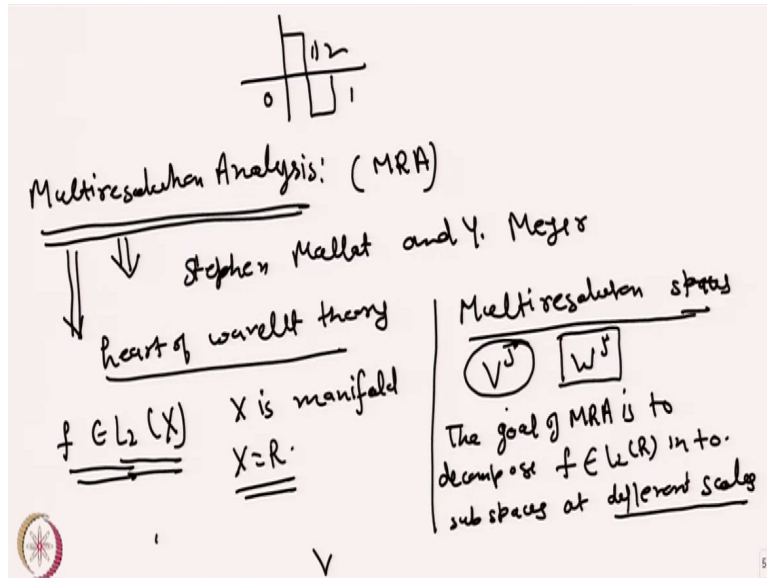 1/2
0 1
Multiresolution Analysis: (MRA)
Stephen Mallat and Y. Meyer
heart of wavelet theory
f ∈ L₂(X) X is manifold
X=R.
Multiresolution spaces
V^J W^J
The goal of MRA is to
decompose f ∈ L₂(R) in to.
sub spaces at different scales
V
5